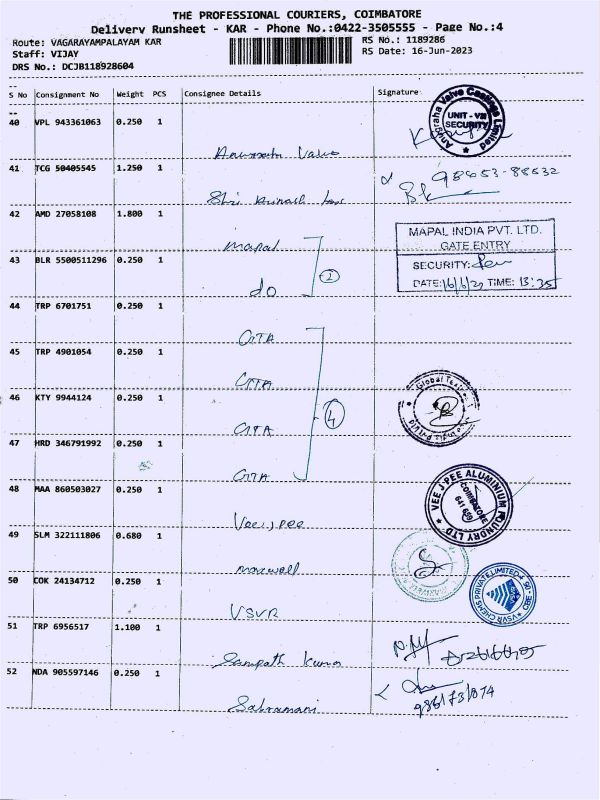 THE PROFESSIONAL COURIERS, COIMBATORE
Delivery Runsheet - KAR - Phone No.:0422-3505555 - Page No.:4
Route: VAGARAYAMPALAYAM KAR
RS No.: 1189286
Staff: VIJAY
RS Date: 16-Jun-2023
DRS No.: DCJB118928604
S No Consignment No Weight PCS Consignee Details Signature
40 VPL 943361063 0.250 1
Anugraha Valve Castings Limited
UNIT - VII
SECURITY
41 TCG 50405545 1.250 1
Shri
42 AMD 27058108 1.800 1 mapal
MAPAL INDIA PVT. LTD.
GATE ENTRY
43 BLR 5500511296 0.250 1 do 2
SECURITY:
DATE: TIME: 13:35
44 TRP 6701751 0.250 1 GTA
45 TRP 4901054 0.250 1 GTA
46 KTY 9944124 0.250 1 GTA 4
47 HRD 346791992 0.250 1 GTA
48 MAA 860503027 0.250 1 Veejpee
VEE J PEE ALUMINIUM FOUNDRY LTD
COIMBATORE
49 SLM 322111806 0.680 1 maxwell
50 COK 24134712 0.250 1 VSVR
VSVR CHEMS PRIVATE LIMITED
CBE
51 TRP 6956517 1.100 1 Sampath Kumar
52 NDA 905597146 0.250 1 Sabramani